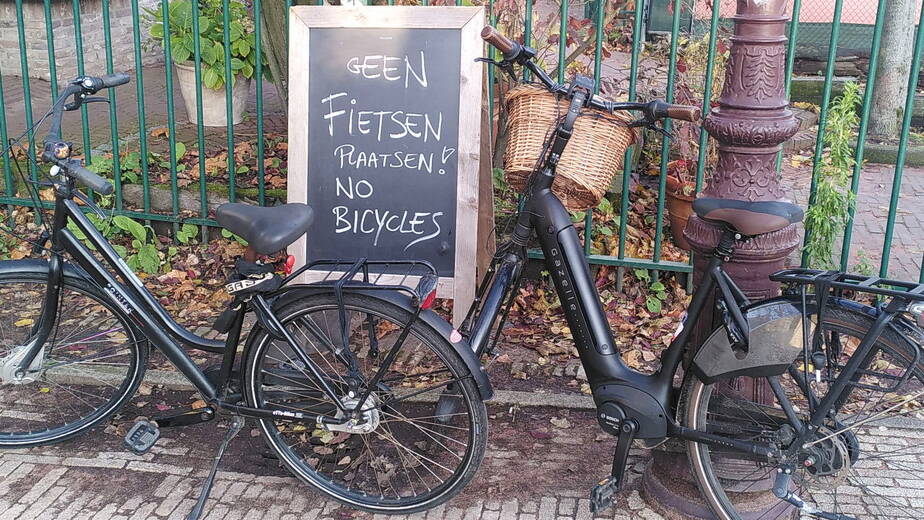 GEEN
FIETSEN
PLAATSEN!
NO
BICYCLES
Gazelle